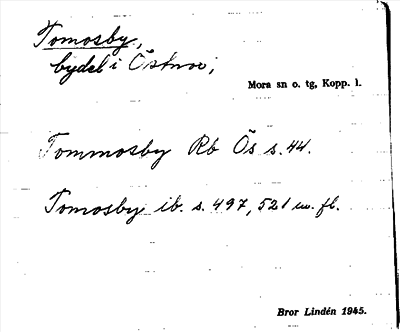 Tomosby,
bydel i Östnor;
Mora sn o. tg, Kopp. l.
Tommosby Rb Ös s. 44.
Tomosby ib. s. 497, 521 m. fl.
Bror Lindén 1945.